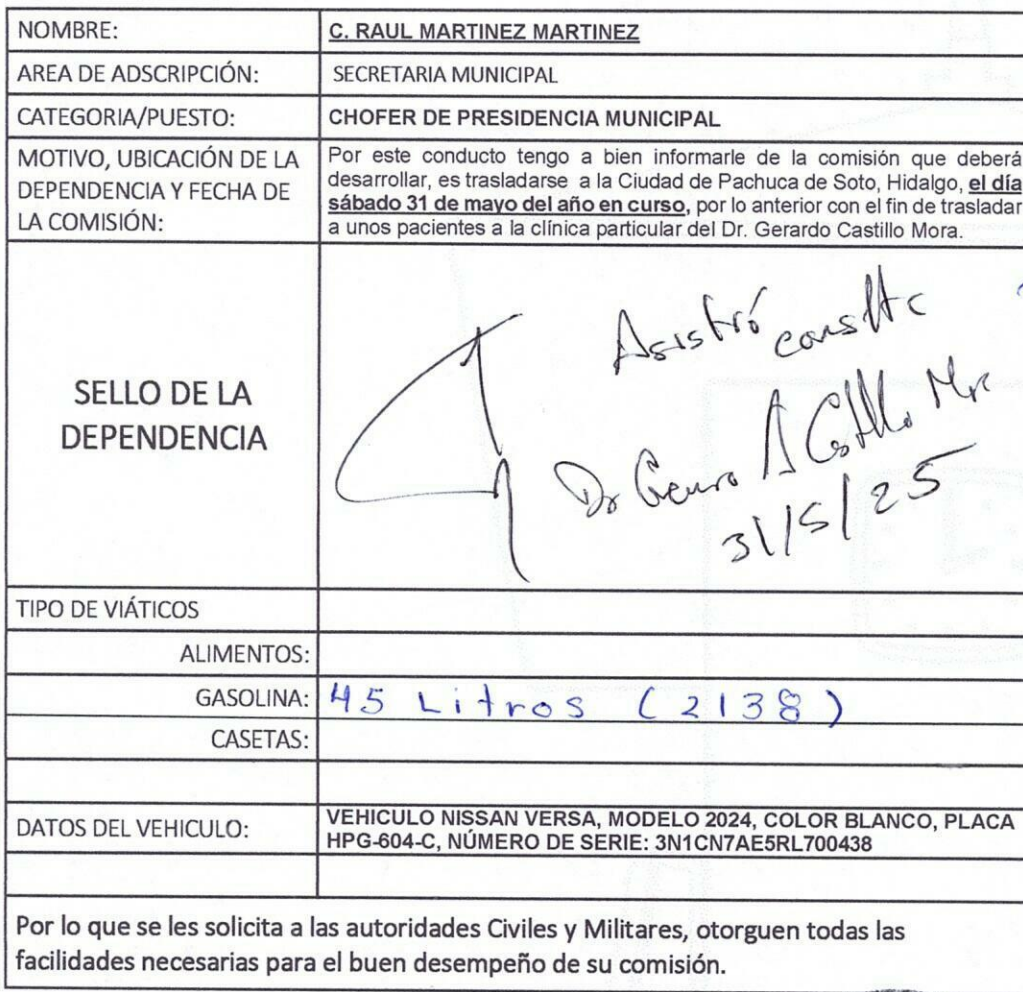 NOMBRE: C. RAUL MARTINEZ MARTINEZ
AREA DE ADSCRIPCIÓN: SECRETARIA MUNICIPAL
CATEGORIA/PUESTO: CHOFER DE PRESIDENCIA MUNICIPAL
MOTIVO, UBICACIÓN DE LA
DEPENDENCIA Y FECHA DE
LA COMISIÓN:
Por este conducto tengo a bien informarle de la comisión que deberá
desarrollar, es trasladarse a la Ciudad de Pachuca de Soto, Hidalgo, el día
sábado 31 de mayo del año en curso, por lo anterior con el fin de trasladar
a unos pacientes a la clínica particular del Dr. Gerardo Castillo Mora.
SELLO DE LA
DEPENDENCIA
Asistió
Dr A Castillo
31/5/25
TIPO DE VIÁTICOS
ALIMENTOS:
GASOLINA: 45 Litros (2138)
CASETAS:
DATOS DEL VEHICULO:
VEHICULO NISSAN VERSA, MODELO 2024, COLOR BLANCO, PLACA
HPG-604-C, NÚMERO DE SERIE: 3N1CN7AE5RL700438
Por lo que se les solicita a las autoridades Civiles y Militares, otorguen todas las
facilidades necesarias para el buen desempeño de su comisión.